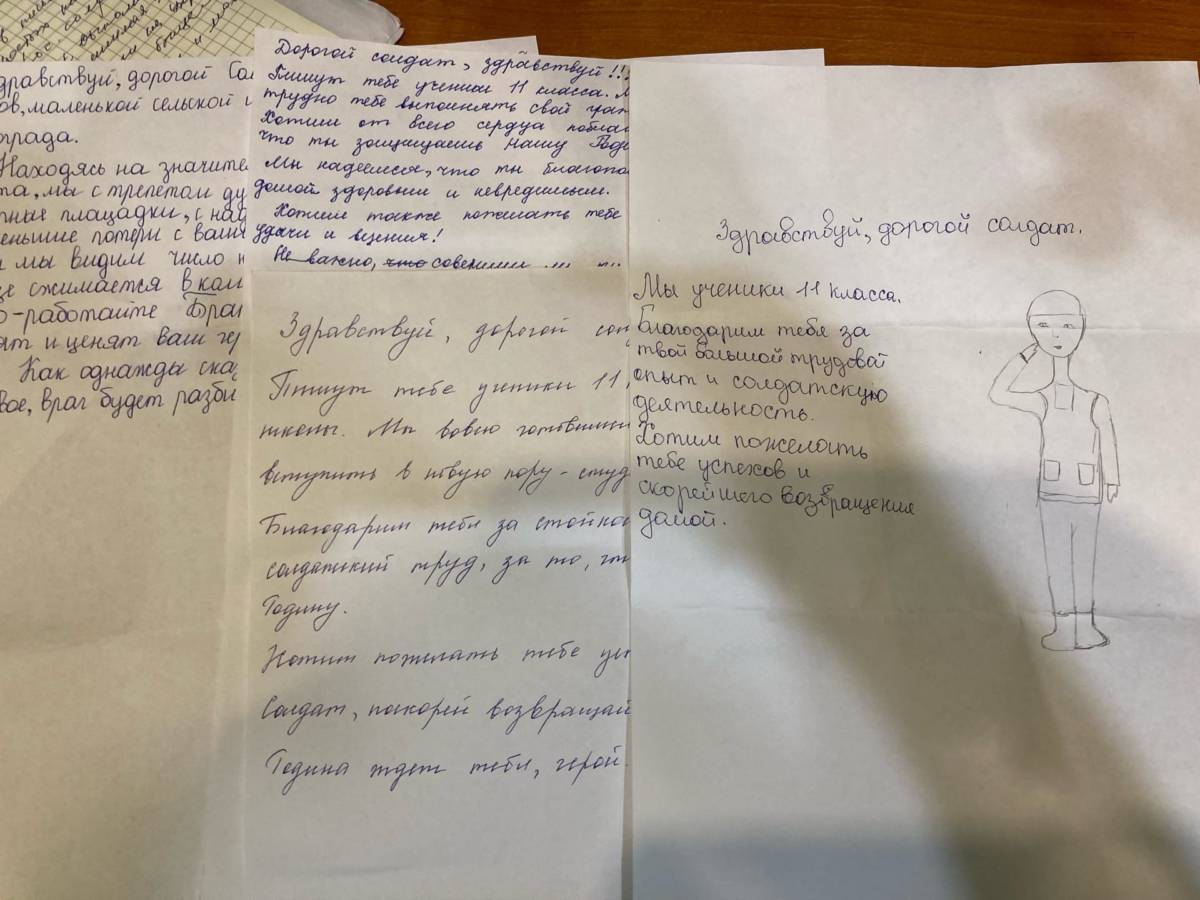 дравствуй, дорогой Сол
ов, маленькой сельской
ограда.
Находясь на значите
та, мы с трепетом ду
тные площадки, с над
еньшие потери с ваше
и мы видим число н
це сжимается в ком
о-работайте Брат
ят и ценят ваш гер
Как однажды ска
вое, враг будет разби
Дорогой солдат, здравствуй!!!
Пишут тебе ученики 11 класса. М
трудно тебе выполнять свой граж
Хотим от всего сердца поблаг
что ты защищаешь нашу Роди
Мы надеемся, что ты благопо
домой здоровым и невредимым.
Хотим также пожелать тебе
удачи и везения!
Не важно, что совенши
Здравствуй, дорогой сол
Пишут тебе ученики 11
школы. Мы вовсю готовимся
вступить в новую пору - студ
Благодарим тебя за стойкос
солдатский труд, за то, что
Родину.
Хотим пожелать тебе уд
Солдат, поскорей возвращай
Родина ждет тебя, герой.
Здравствуй, дорогой солдат.
Мы ученики 11 класса.
Благодарим тебя за
твой большой трудовой
опыт и солдатскую
деятельность.
Хотим пожелать
тебе успехов и
скорейшего возвращения
домой.